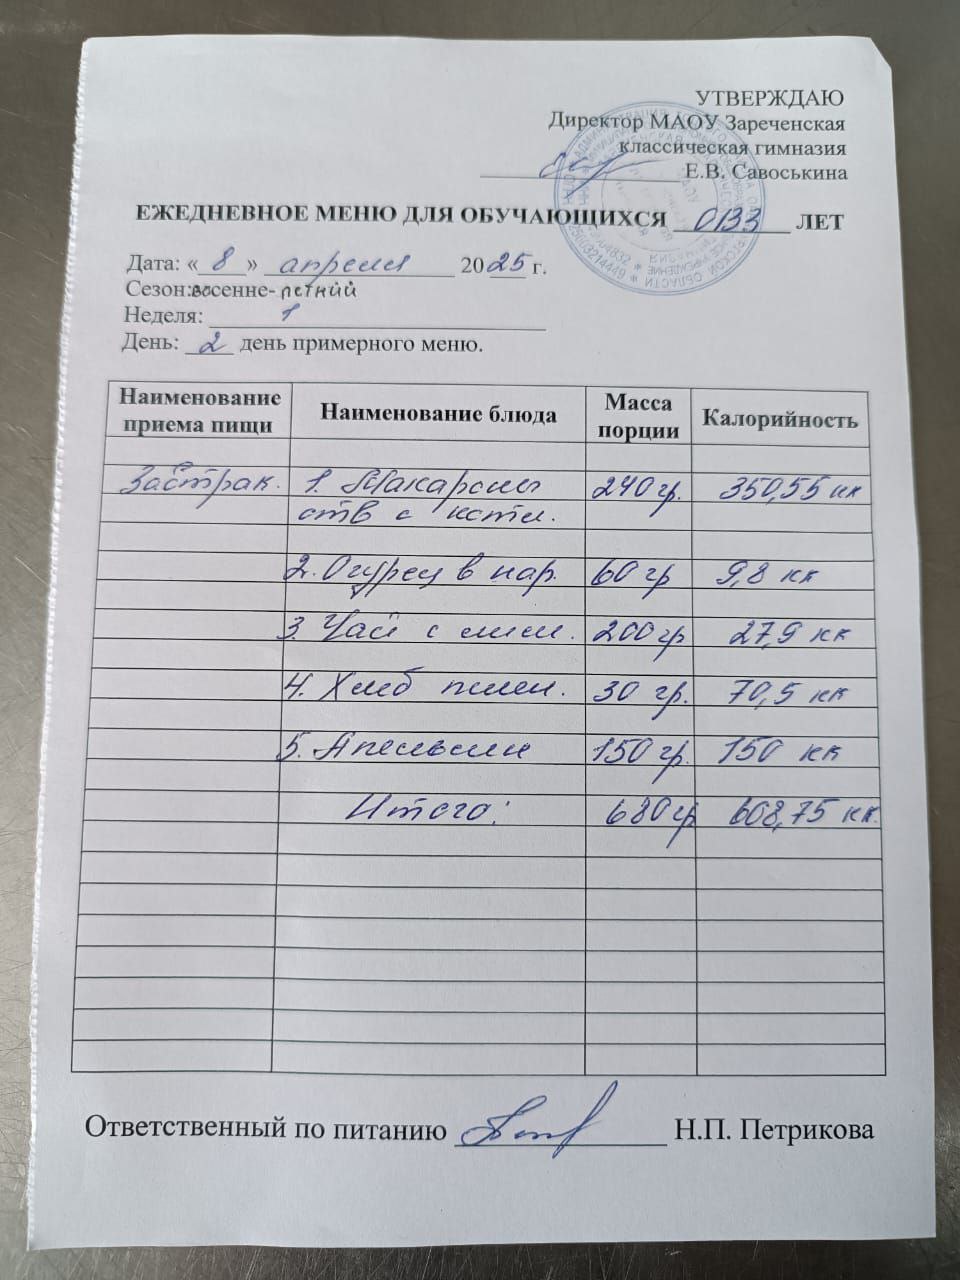 УТВЕРЖДАЮ
Директор МАОУ Зареченская
классическая гимназия
Е.В. Савоськина
ЕЖЕДНЕВНОЕ МЕНЮ ДЛЯ ОБУЧАЮЩИХСЯ ОВЗ ЛЕТ
Дата: « 8 » апреля 2025 г.
Сезон: весенне-летний
Неделя: 1
День: 2 день примерного меню.
Наименование приема пищи Наименование блюда Масса порции Калорийность
Завтрак. 1. Макароны 240 гр. 350,55 кк
отв с котл.
2. Огурец в нар. 60 гр 9,8 кк
3. Чай с лим. 200 гр 27,9 кк
4. Хлеб пшен. 30 гр. 70,5 кк
5. Апельсин 150 гр. 150 кк
Итого: 680 гр 608,75 кк.
Ответственный по питанию Н.П. Петрикова